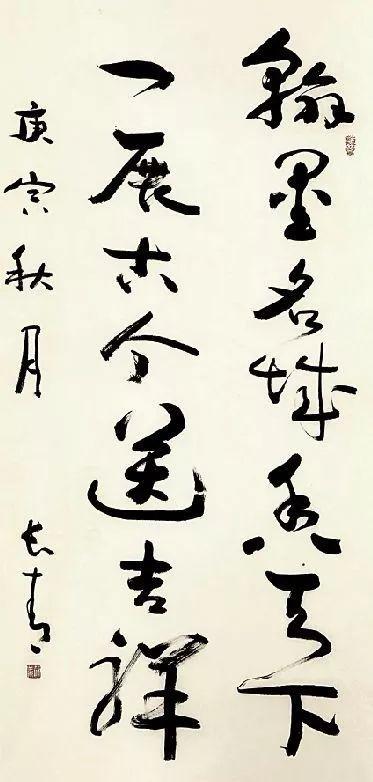 翰墨名城香天下
一展古今送吉祥
庚寅秋月 长青